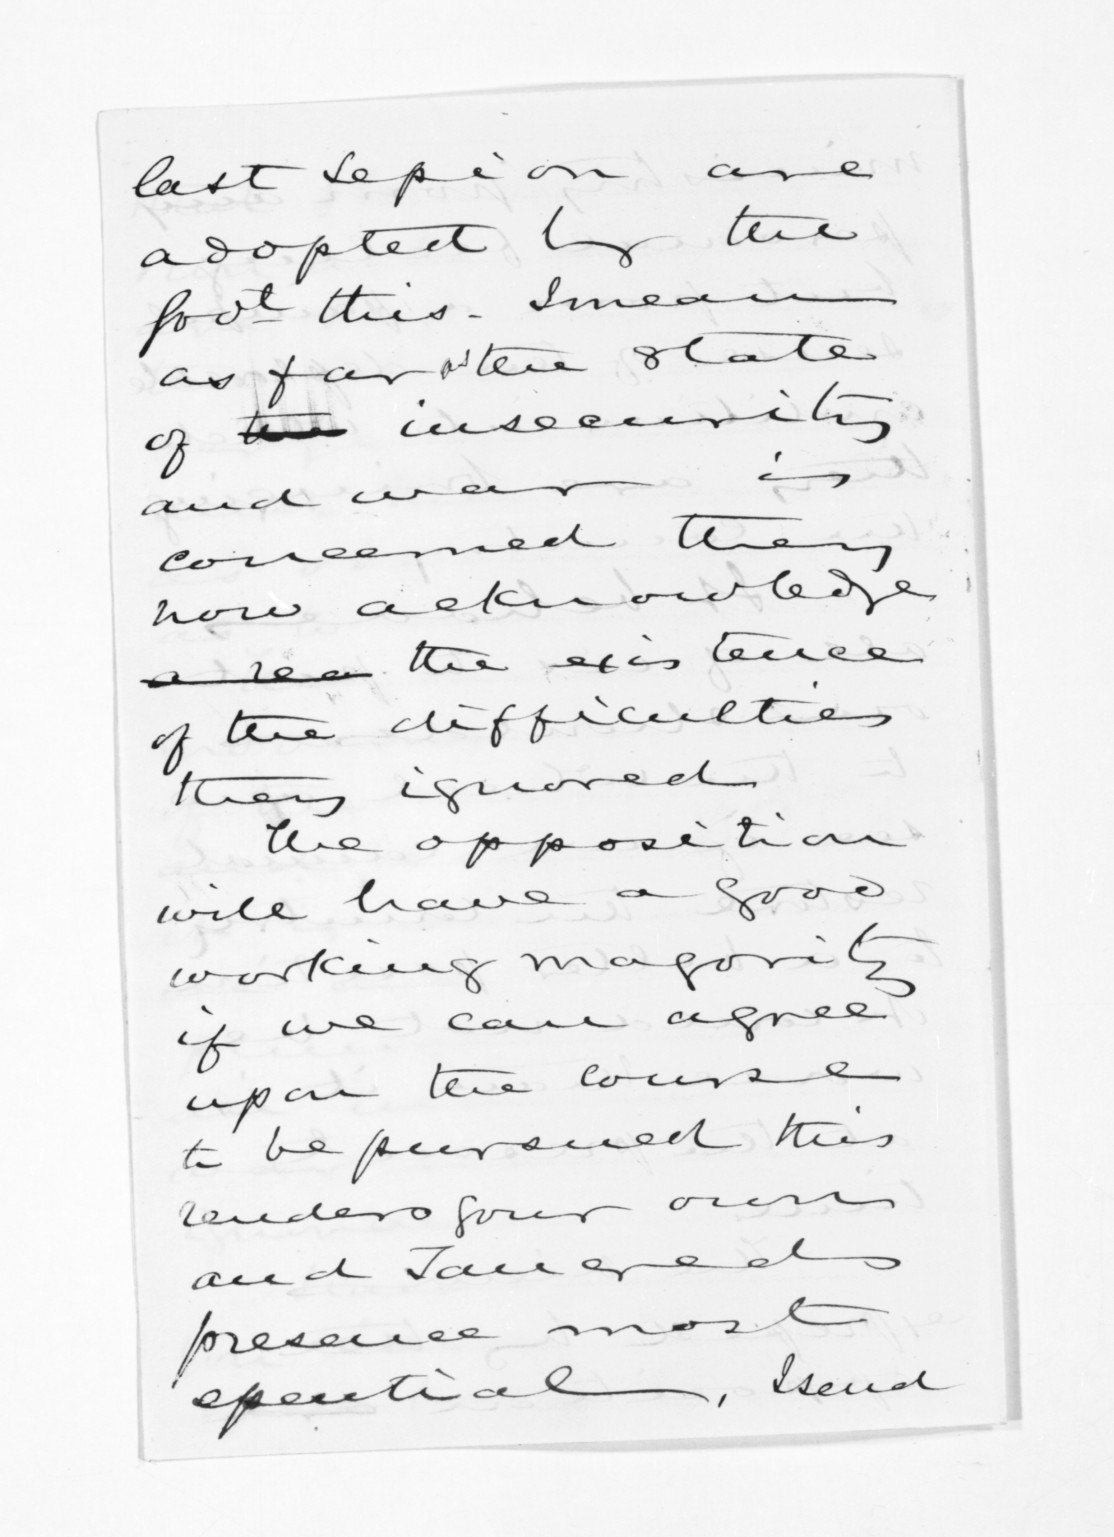 last session are
adopted by the
Govt this - I mean
as far as the state
of the insecurity
and war is
concerned they
now acknowledge
a rea the existence
of the difficulties
they ignored
The opposition
will have a good
working magority
if we can agree
upon the course
to be pursued this
renders your own
and Tancreds
presence most
essential, I send